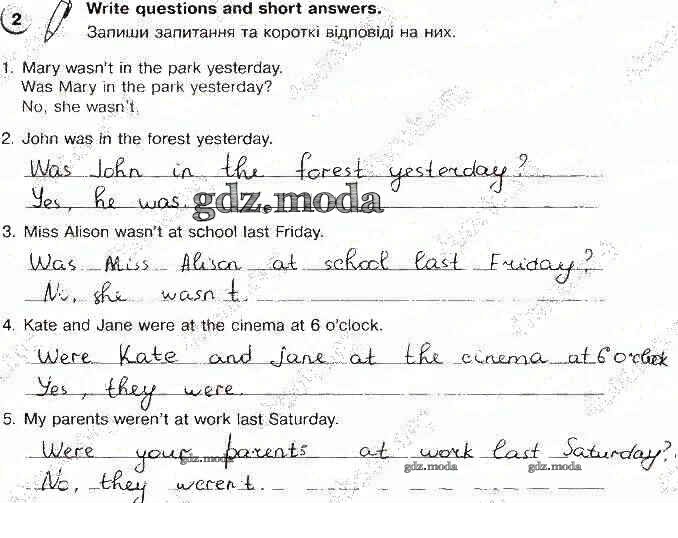 2 Write questions and short answers.
Запиши запитання та короткі відповіді на них.
1. Mary wasn't in the park yesterday.
Was Mary in the park yesterday?
No, she wasn't.
2. John was in the forest yesterday.
Was John in the forest yesterday?
Yes, he was. gdz.moda
3. Miss Alison wasn't at school last Friday.
Was Miss Alison at school last Friday?
No, she wasn t.
4. Kate and Jane were at the cinema at 6 o'clock.
Were Kate and Jane at the cinema at 6 o'clock
Yes, they were.
5. My parents weren't at work last Saturday.
Were your parents at work last Saturday?
gdz.moda gdz.moda gdz.moda
No, they weren t.